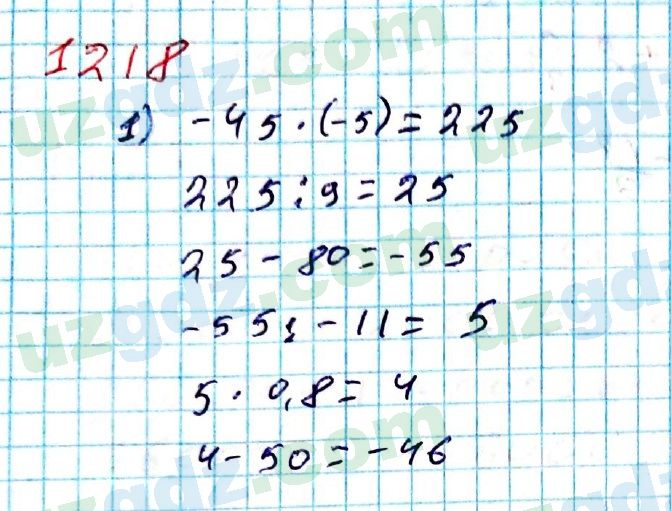 1218
1) -45 · (-5) = 225
225 : 9 = 25
25 - 80 = -55
-55 : -11 = 5
5 · 0,8 = 4
4 - 50 = -46
uzgdz.com